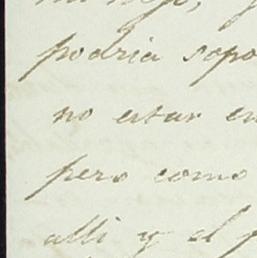 mi hijo,
podria sopo
no estar en
pero como
alli y el p